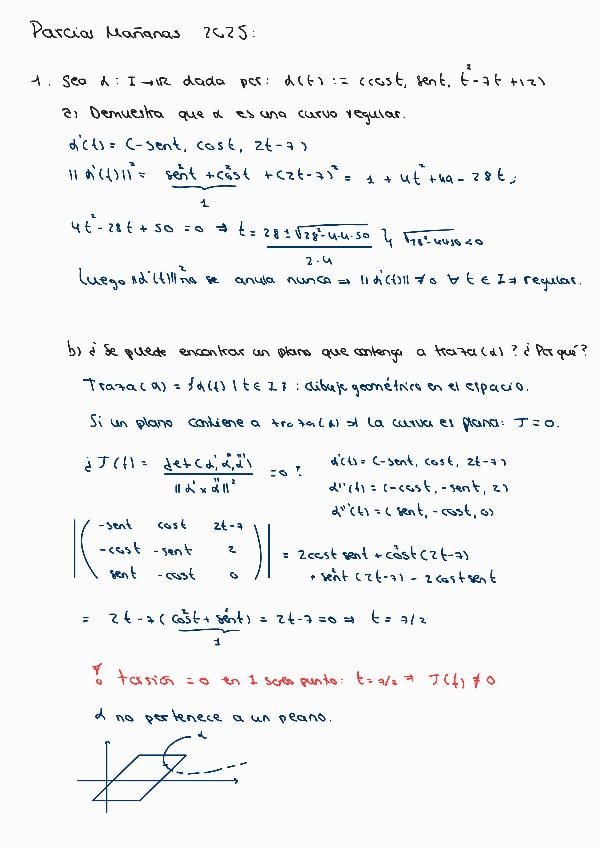 Parcial Mañanas 2025:
1. Sea α: I→IR dada por: α(t) := (cost, sent, t²-7t+12)
a) Demuestra que α es una curva regular.
α'(t) = (-sent, cost, 2t-7)
||α'(t)||² = sen²t + cos²t + (2t-7)² = 1 + 4t² + 49 - 28t;
1
4t²-28t+50 = 0 ⇒ t = 28 ± √28²-4·4·50 } √28²-4·4·50 < 0
2·4
Luego ||α'(t)||² no se anula nunca ⇒ ||α'(t)|| ≠ 0 ∀ t ∈ I ⇒ regular.
b) ¿Se puede encontrar un plano que contenga a traza(α)? ¿Por qué?
Traza(α) = {α(t) | t ∈ I}: dibujo geométrico en el espacio.
Si un plano contiene a traza(α) ⇒ la curva es plana: τ = 0.
¿τ(t) = det(α', α'', α''') = 0? α'(t) = (-sent, cost, 2t-7)
||α' x α''||² α''(t) = (-cost, -sent, 2)
α'''(t) = (sent, -cost, 0)
-sent cost 2t-7
-cost -sent 2 = 2cost sent + cos²t(2t-7)
sent -cost 0 + sen²t (2t-7) - 2cost sent
= 2t-7 (cos²t + sen²t) = 2t-7 = 0 ⇒ t = 7/2
1
torsión = 0 en 1 solo punto: t = 7/2 ⇒ τ(t) ≠ 0
α no pertenece a un plano.
α